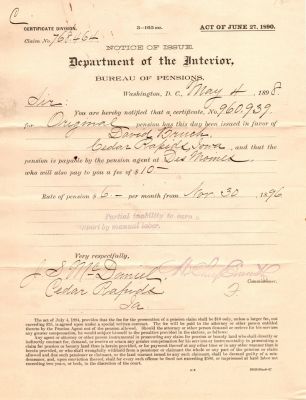 C
CERTIFICATE DIVISION. 3-165 ACT OF JUNE 27, 1890.
Claim No. 768464
NOTICE OF ISSUE.
Department of the Interior,
BUREAU OF PENSIONS,
Washington, D. C., May 4, 1898
Sir:
You are hereby notified that a certificate, No. 960,939
for Original pension has this day been issued in favor of
David
Cedar Rapids Iowa, and that the
pension is payable by the pension agent at Des Moines
who will also pay to you a fee of $10-
Rate of pension $6- per month from Nov. 30 1896
Partial inability to earn a
support by manual labor.
Very respectfully,
J S McDaniel
Cedar Rapids
Ia
The act of July 4, 1884, provides that the fee for the prosecution of a pension claim shall be $10 only, unless a larger fee, not
exceeding $25, is agreed upon under a special written contract. The fee will be paid to the attorney or other person entitled
thereto by the Pension Agent out of the pension allowed. Should the attorney or other person demand or receive for his services
any greater compensation, he would subject himself to the penalties provided in the act, which are as follows:
Any agent or attorney or other person instrumental in prosecuting any claim for pension or bounty land who shall directly or
indirectly contract for, demand, or receive or retain any greater compensation for his services or instrumentality in prosecuting a
claim for pension or bounty land than is herein provided, or for payment thereof at any other time or in any other manner than is
herein provided, or who shall wrongfully withhold from a pensioner or claimant the whole or any part of the pension or claim
allowed and due such pensioner or claimant, or the land warrant issued to any such claimant, shall be deemed guilty of a mis-
demeanor, and, upon conviction thereof, shall for every such offense be fined not exceeding $500, or imprisoned at hard labor not
exceeding two years, or both, in the discretion of the court.